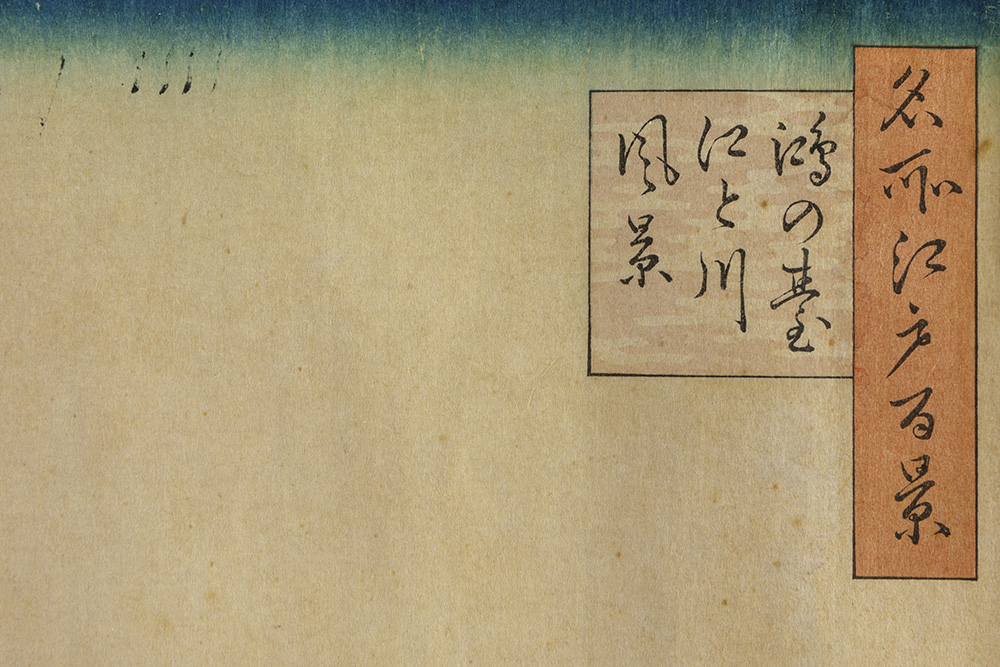 名所江戸百景
鴻の臺
江と川
風景